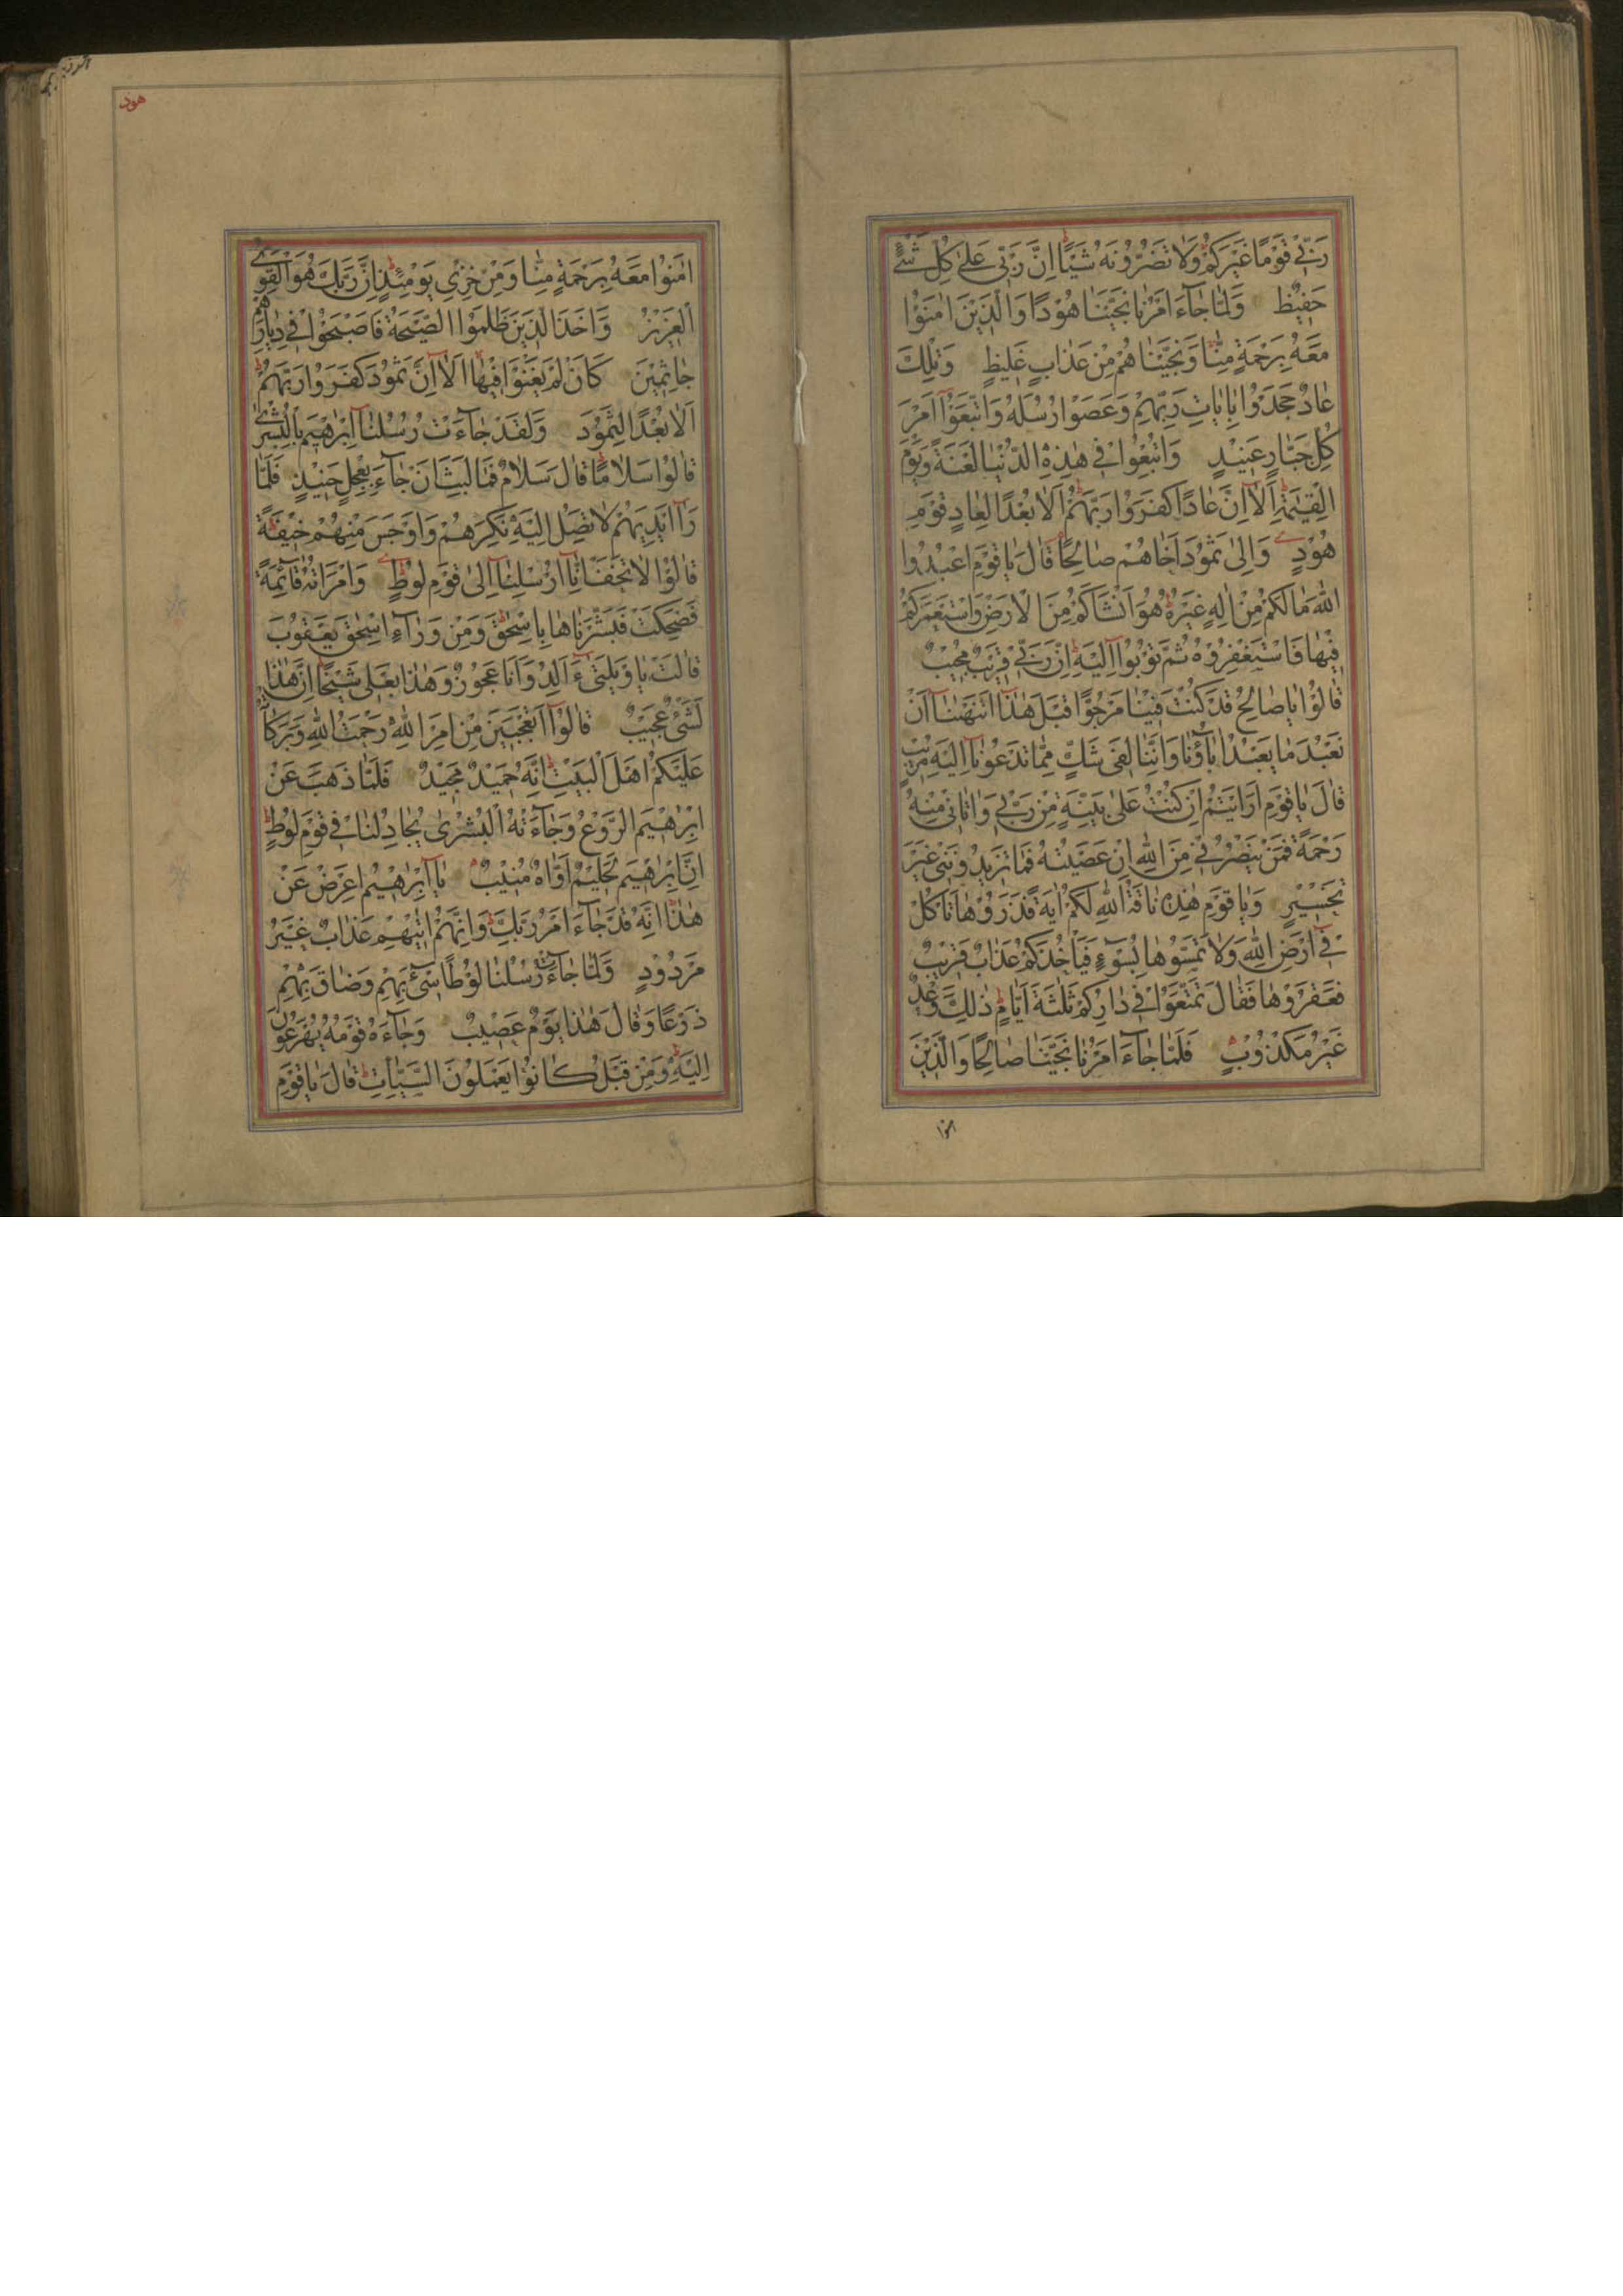 رَبِّيْ قَوْمًا غَيْرَكُمْ وَلَا تَضُرُّوْنَهُ شَيْئًا اِنَّ رَبِّيْ عَلٰى كُلِّ شَيْءٍ
حَفِيْظٌ وَلَمَّا جَآءَ اَمْرُنَا نَجَّيْنَا هُوْدًا وَالَّذِيْنَ اٰمَنُوْا
مَعَهُ بِرَحْمَةٍ مِنَّا وَنَجَّيْنَاهُمْ مِنْ عَذَابٍ غَلِيْظٍ وَتِلْكَ
عَادٌ جَحَدُوْا بِاٰيَاتِ رَبِّهِمْ وَعَصَوْا رُسُلَهُ وَاتَّبَعُوْٓا اَمْرَ
كُلِّ جَبَّارٍ عَنِيْدٍ وَاُتْبِعُوْا فِيْ هٰذِهِ الدُّنْيَا لَعْنَةً وَيَوْمَ
الْقِيٰمَةِ اَلَآ اِنَّ عَادًا كَفَرُوْا رَبَّهُمْ اَلَا بُعْدًا لِعَادٍ قَوْمِ
هُوْدٍ وَاِلٰى ثَمُوْدَ اَخَاهُمْ صَالِحًا قَالَ يَا قَوْمِ اعْبُدُوا
اللّٰهَ مَا لَكُمْ مِنْ اِلٰهٍ غَيْرُهُ هُوَ اَنْشَاَكُمْ مِنَ الْاَرْضِ وَاسْتَعْمَرَكُمْ
فِيْهَا فَاسْتَغْفِرُوْهُ ثُمَّ تُوْبُوْٓا اِلَيْهِ اِنَّ رَبِّيْ قَرِيْبٌ مُجِيْبٌ
قَالُوْا يَا صَالِحُ قَدْ كُنْتَ فِيْنَا مَرْجُوًّا قَبْلَ هٰذَٓا اَتَنْهٰنَآ اَنْ
نَعْبُدَ مَا يَعْبُدُ اٰبَآؤُنَا وَاِنَّنَا لَفِيْ شَكٍّ مِمَّا تَدْعُوْنَآ اِلَيْهِ مُرِيْبٍ
قَالَ يَا قَوْمِ اَرَاَيْتُمْ اِنْ كُنْتُ عَلٰى بَيِّنَةٍ مِنْ رَبِّيْ وَاٰتَانِيْ مِنْهُ
رَحْمَةً فَمَنْ يَنْصُرُنِيْ مِنَ اللّٰهِ اِنْ عَصَيْتُهُ فَمَا تَزِيْدُوْنَنِيْ غَيْرَ
تَخْسِيْرٍ وَيَا قَوْمِ هٰذِهِ نَاقَةُ اللّٰهِ لَكُمْ اٰيَةً فَذَرُوْهَا تَاْكُلْ
فِيْٓ اَرْضِ اللّٰهِ وَلَا تَمَسُّوْهَا بِسُوْٓءٍ فَيَاْخُذَكُمْ عَذَابٌ قَرِيْبٌ
فَعَقَرُوْهَا فَقَالَ تَمَتَّعُوْا فِيْ دَارِكُمْ ثَلٰثَةَ اَيَّامٍ ذٰلِكَ وَعْدٌ
غَيْرُ مَكْذُوْبٍ فَلَمَّا جَآءَ اَمْرُنَا نَجَّيْنَا صَالِحًا وَالَّذِيْنَ
هود
اٰمَنُوْا مَعَهُ بِرَحْمَةٍ مِنَّا وَمِنْ خِزْيِ يَوْمِئِذٍ اِنَّ رَبَّكَ هُوَ الْقَوِيُّ
الْعَزِيْزُ وَاَخَذَ الَّذِيْنَ ظَلَمُوا الصَّيْحَةُ فَاَصْبَحُوْا فِيْ دِيَارِهِمْ
جَاثِمِيْنَ كَاَنْ لَمْ يَغْنَوْا فِيْهَا اَلَآ اِنَّ ثَمُوْدَ كَفَرُوْا رَبَّهُمْ
اَلَا بُعْدًا لِثَمُوْدَ وَلَقَدْ جَآءَتْ رُسُلُنَآ اِبْرٰهِيْمَ بِالْبُشْرٰى
قَالُوْا سَلَامًا قَالَ سَلَامٌ فَمَا لَبِثَ اَنْ جَآءَ بِعِجْلٍ حَنِيْذٍ فَلَمَّا
رَآٰ اَيْدِيَهُمْ لَا تَصِلُ اِلَيْهِ نَكِرَهُمْ وَاَوْجَسَ مِنْهُمْ خِيْفَةً
قَالُوْا لَا تَخَفْ اِنَّآ اُرْسِلْنَآ اِلٰى قَوْمِ لُوْطٍ وَامْرَاَتُهُ قَآئِمَةٌ
فَضَحِكَتْ فَبَشَّرْنَاهَا بِاِسْحٰقَ وَمِنْ وَرَآءِ اِسْحٰقَ يَعْقُوْبَ
قَالَتْ يَا وَيْلَتٰىٓ ءَاَلِدُ وَاَنَا عَجُوْزٌ وَهٰذَا بَعْلِيْ شَيْخًا اِنَّ هٰذَا
لَشَيْءٌ عَجِيْبٌ قَالُوْٓا اَتَعْجَبِيْنَ مِنْ اَمْرِ اللّٰهِ رَحْمَتُ اللّٰهِ وَبَرَكَاتُهُ
عَلَيْكُمْ اَهْلَ الْبَيْتِ اِنَّهُ حَمِيْدٌ مَجِيْدٌ فَلَمَّا ذَهَبَ عَنْ
اِبْرٰهِيْمَ الرَّوْعُ وَجَآءَتْهُ الْبُشْرٰى يُجَادِلُنَا فِيْ قَوْمِ لُوْطٍ
اِنَّ اِبْرٰهِيْمَ لَحَلِيْمٌ اَوَّاهٌ مُنِيْبٌ يَآ اِبْرٰهِيْمُ اَعْرِضْ عَنْ
هٰذَا اِنَّهُ قَدْ جَآءَ اَمْرُ رَبِّكَ وَاِنَّهُمْ اٰتِيْهِمْ عَذَابٌ غَيْرُ
مَرْدُوْدٍ وَلَمَّا جَآءَتْ رُسُلُنَا لُوْطًا سِيْٓءَ بِهِمْ وَضَاقَ بِهِمْ
ذَرْعًا وَقَالَ هٰذَا يَوْمٌ عَصِيْبٌ وَجَآءَهُ قَوْمُهُ يُهْرَعُوْنَ
اِلَيْهِ وَمِنْ قَبْلُ كَانُوْا يَعْمَلُوْنَ السَّيِّاٰتِ قَالَ يَا قَوْمِ